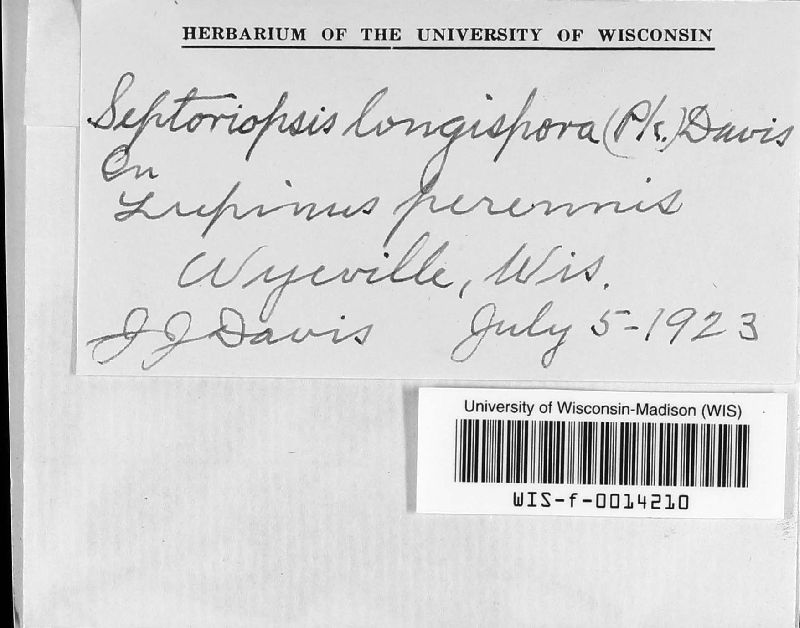 HERBARIUM OF THE UNIVERSITY OF WISCONSIN
Septoriopsis longispora (Pk.) Davis
On
Lupinus perennis
Wyeville, Wis.
J J Davis July 5-1923
University of Wisconsin-Madison (WIS)
WIS-f-0014210